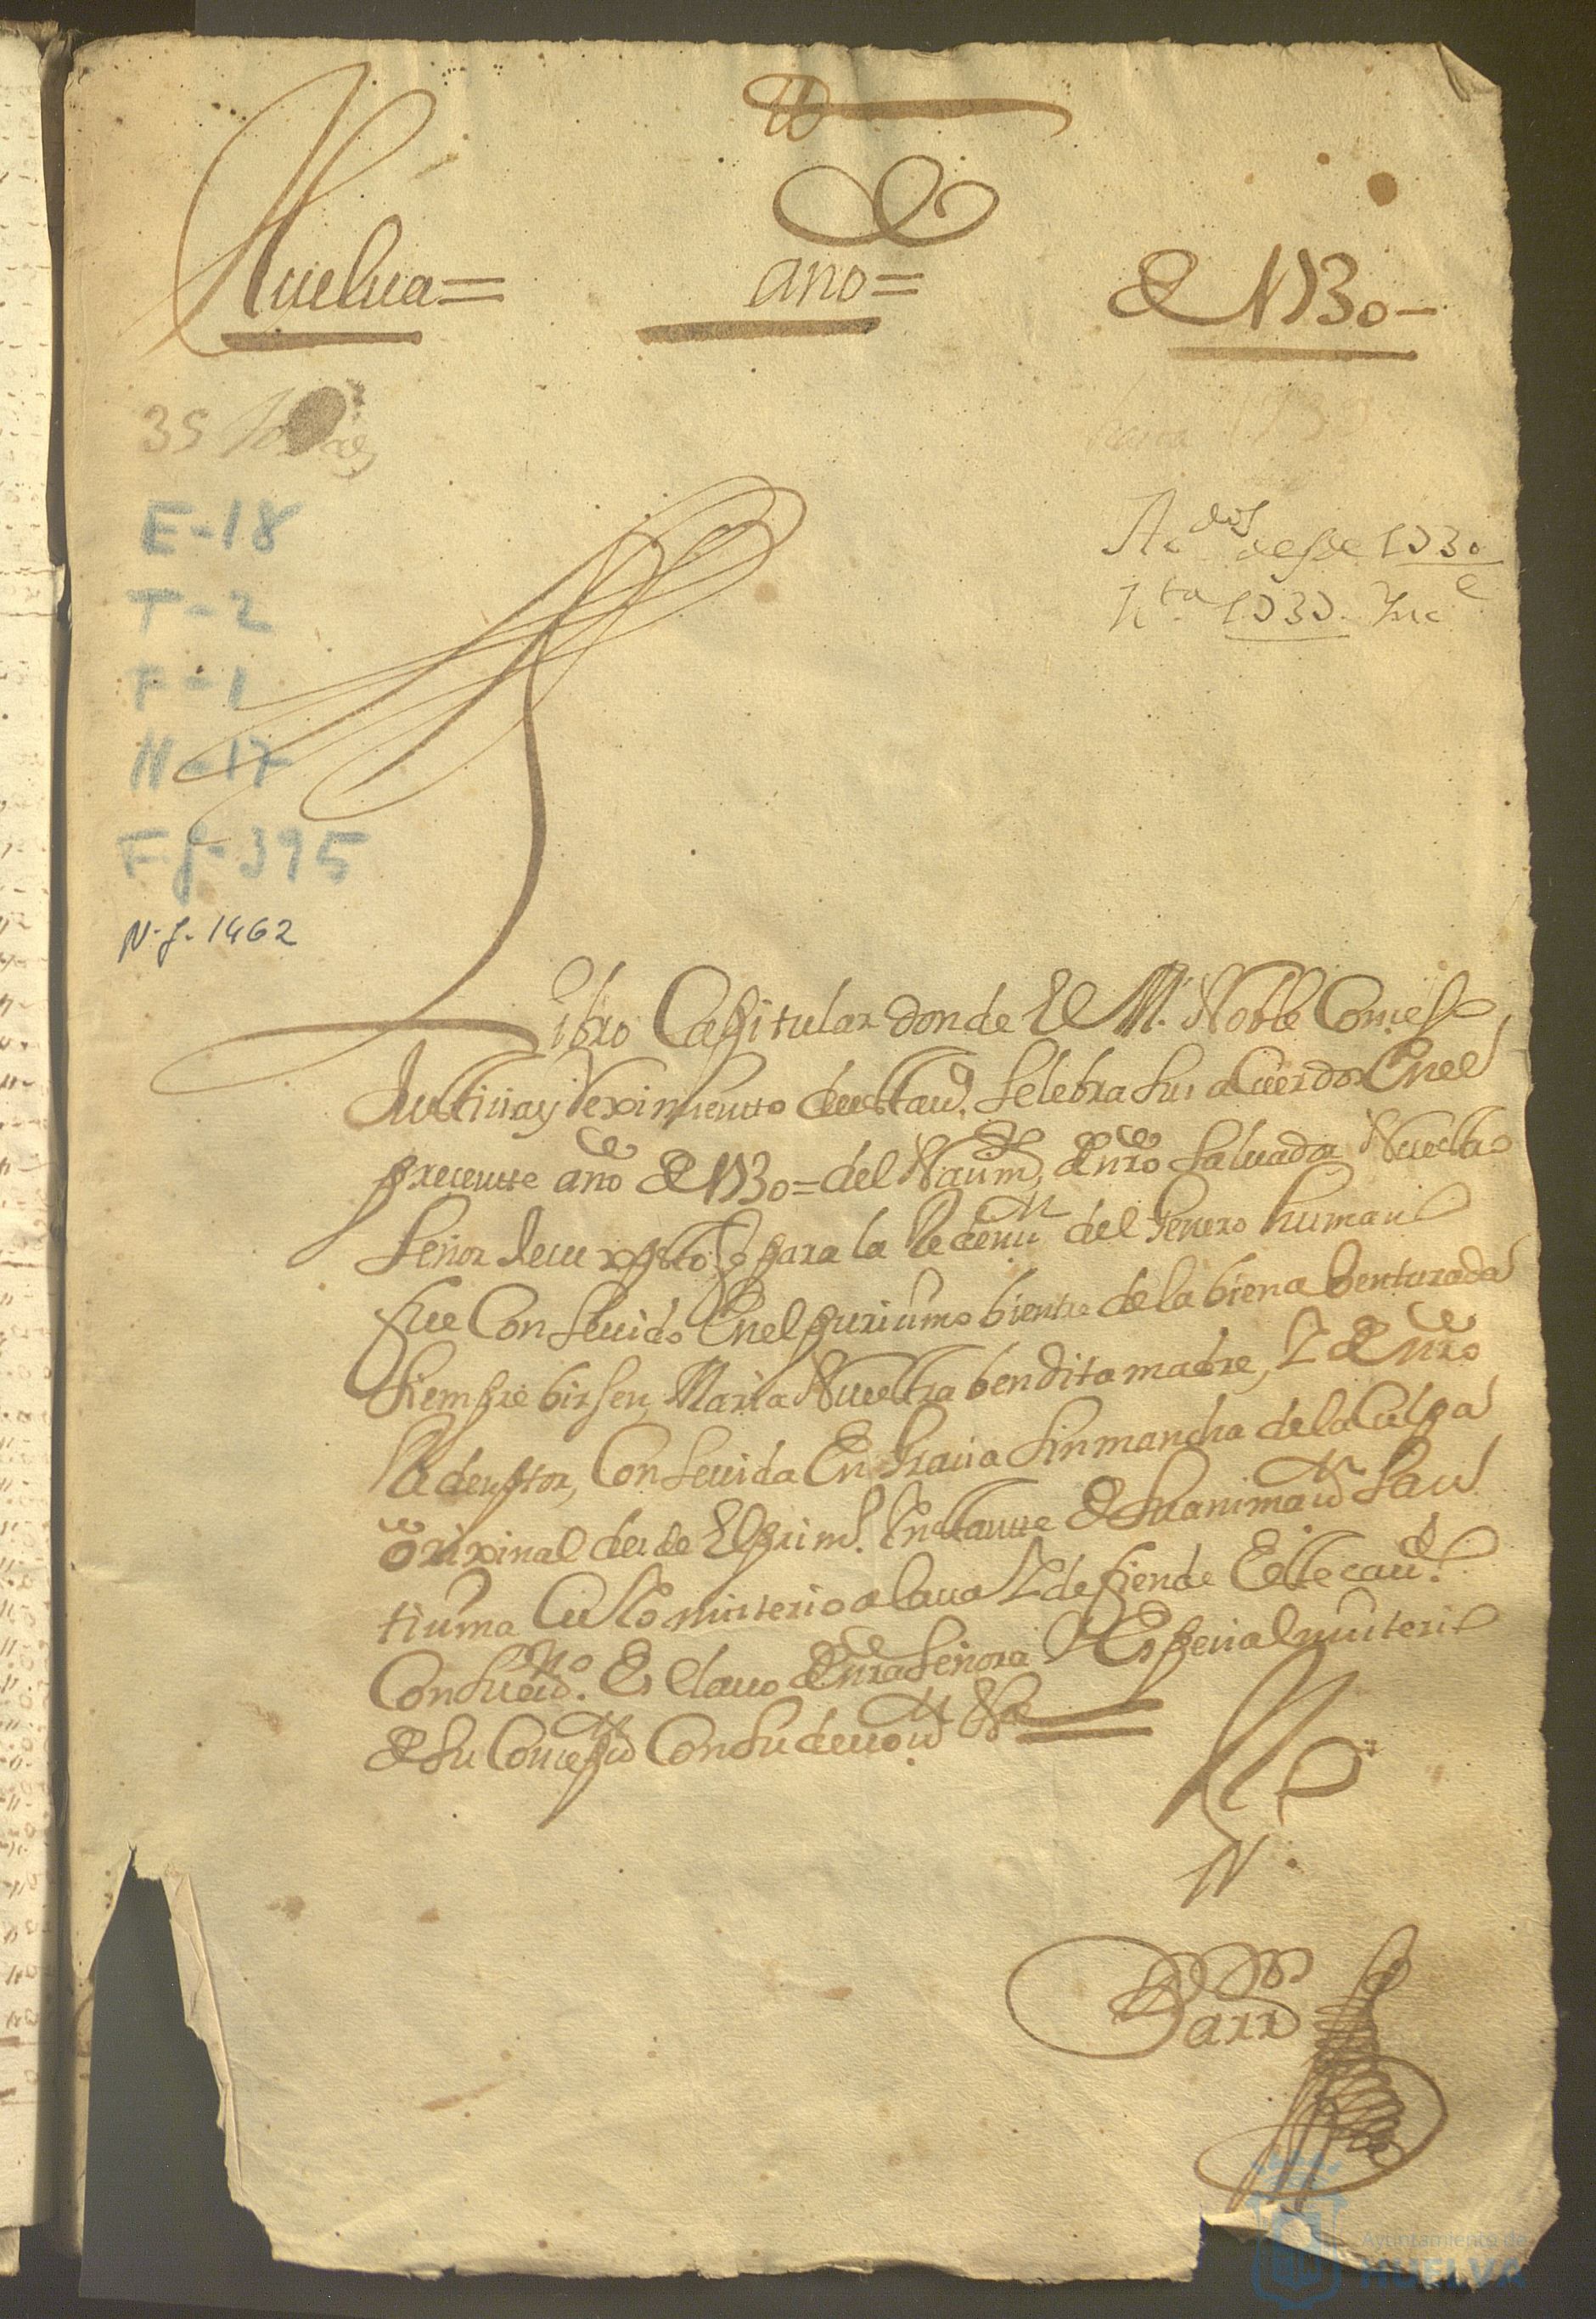 Huelua=
año=
de 1730-
35
hasta 1739
E-18
Acdos desde 1730
T-2
hta 1737 Incе
F-1
N-17
Fj-395
N.J. 1462
Libro Capitular donde El M. Noble Consejo
Justiciay Reximiento destau. Selebra Sus aCuerdos Enel
precente año de 1730=del Nacim, de nro Saluador Nuestro
Señor Jesu xpto, q para la Redenn del Jenero humano
fue Conseuido Enel purisimo bientre dela biena benturada
Siempre birjen, Maria Nuestra bendita madre, Y de nro
Redemptor, Conseuida En Gracia Sinmancha dela Culpa
orixinal desde El prim. Instante de Su animacion San
tisima Cuyo misterio alaua Y defiende Este cau.
Con Su Esclauo de nra Señora Y Especial misterio
de Su Concepn Con Su deuocion &